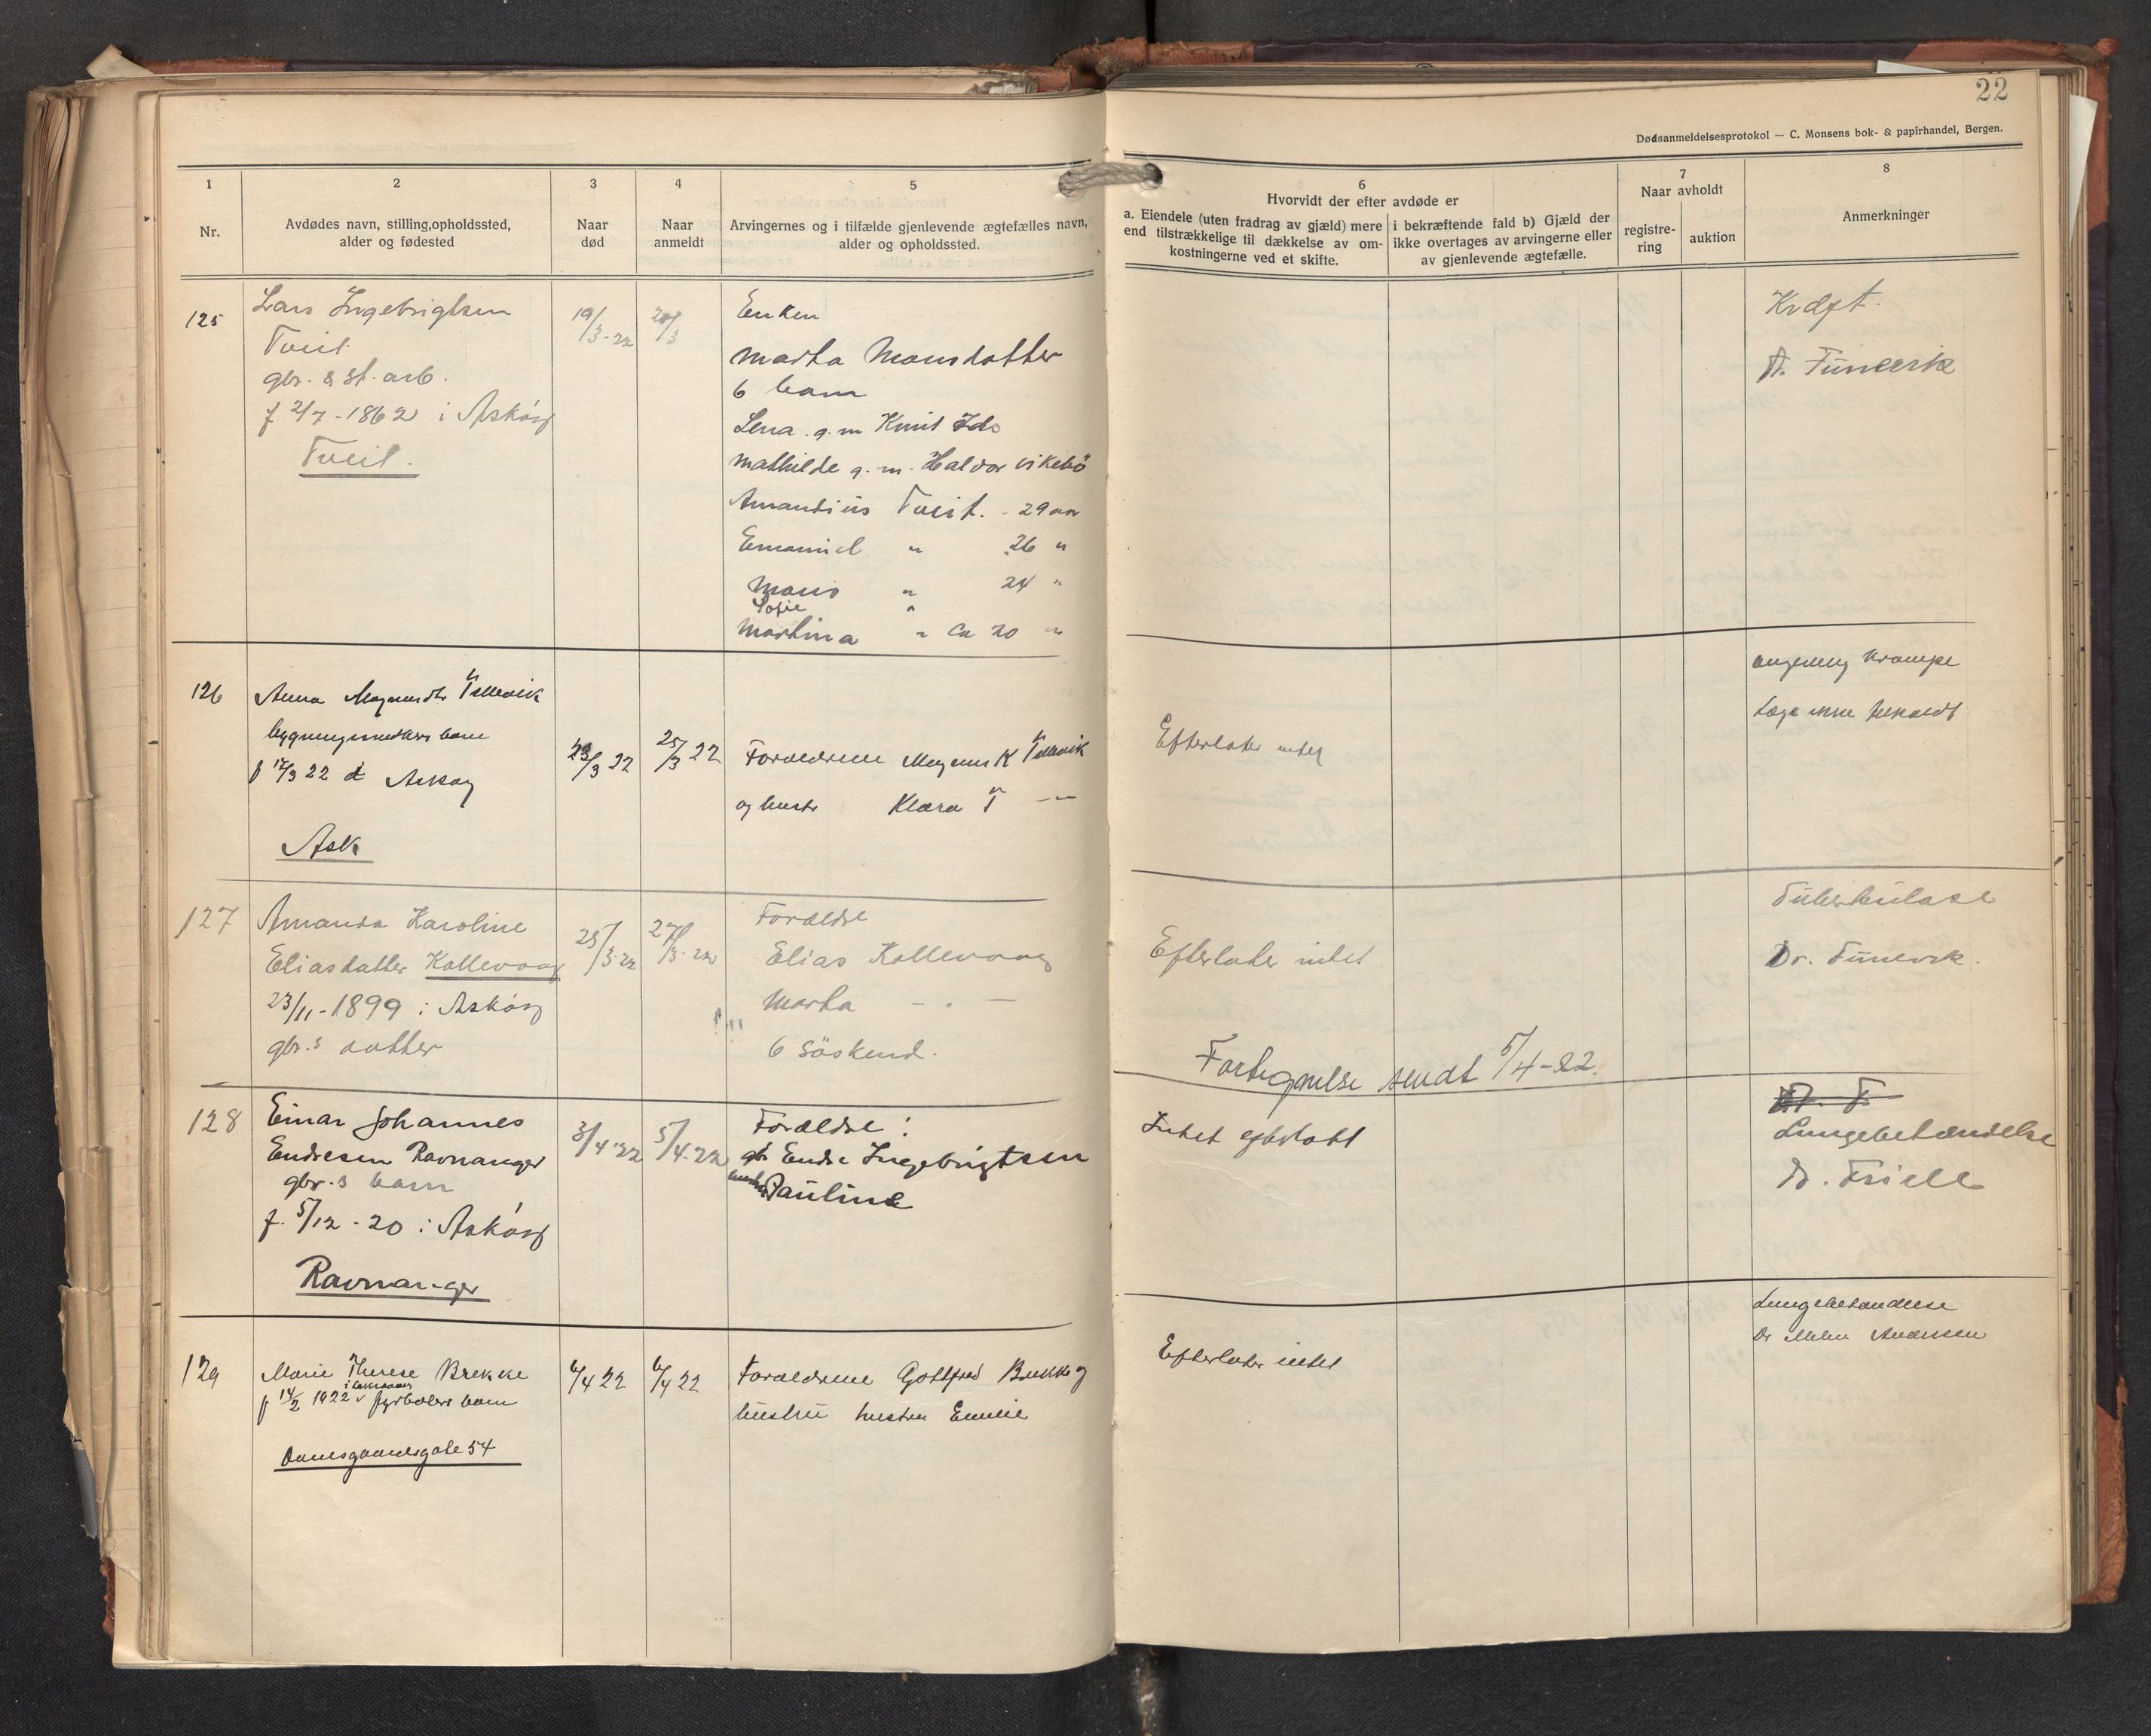 22
Dødsanmeldelsesprotokol — C. Monsens bok- & papirhandel, Bergen.
1
Nr.
2
Avdødes navn, stilling, opholdssted,
alder og fødested
3
Naar
død
4
Naar
anmeldt
5
Arvingernes og i tilfælde gjenlevende ægtefælles navn,
alder og opholdssted.
6
Hvorvidt der efter avdøde er
a. Eiendele (uten fradrag av gjæld) mere
end tilstrækkelige til dækkelse av om-
kostningerne ved et skifte.
i bekræftende fald b) Gjæld der
ikke overtages av arvingerne eller
av gjenlevende ægtefælle.
7
Naar avholdt
registre-
ring
auktion
8
Anmerkninger
125
Lars Ingebrigtsen
Tveit
gbr. & st. arb.
f 2/7 - 1862 i Askøy
Tveit.
19/3-22
Enken
Marta Monsdatter
6 barn
Lena g.m Knut
Mathilde g.m. Haldor Vikebö
Amandius Tveit. - 29 aar
Emanuel " 26 "
Marie " 24 "
Sofie "
Martina " ca 20 "
Kræft.
126
Anna
f 12/3 22 Askøy
Ask
23/3 22
25/3 22
Forældrene Magnus K
og hustr Klara T —"—
Efterlater intet
krampe
Læge ikke
127
Amanda Karoline
Eliasdatter Kollevaag
23/11-1899 i Askøy
gbr.s datter
25/3-22
27/3-22
Forældre
Elias Kollevaag
Marta - " -
6 söskend.
Efterlater intet
Tuberkulose
Fortegnelse sendt 5/4-22.
128
Einar Johannes
Endresen Ravnanger
gbr.s barn
f. 5/12-20 i Askøy
Ravnanger
3/4 22
5/4-22
Forældre:
gbr Endre Ingebrigtsen
hustru Pauline
Intet efterlatt
Lungebetændelse
Dr. Friele
129
Marie Therese Brekke
f 14/2 1922 fyrbøters barn
Damsgaardsgate 54
6/4 22
6/4 22
Forældrene Gottfred Brekke og
hustru hustru Emilie
Efterlater intet
Lungebetændelse
Dr Andersen